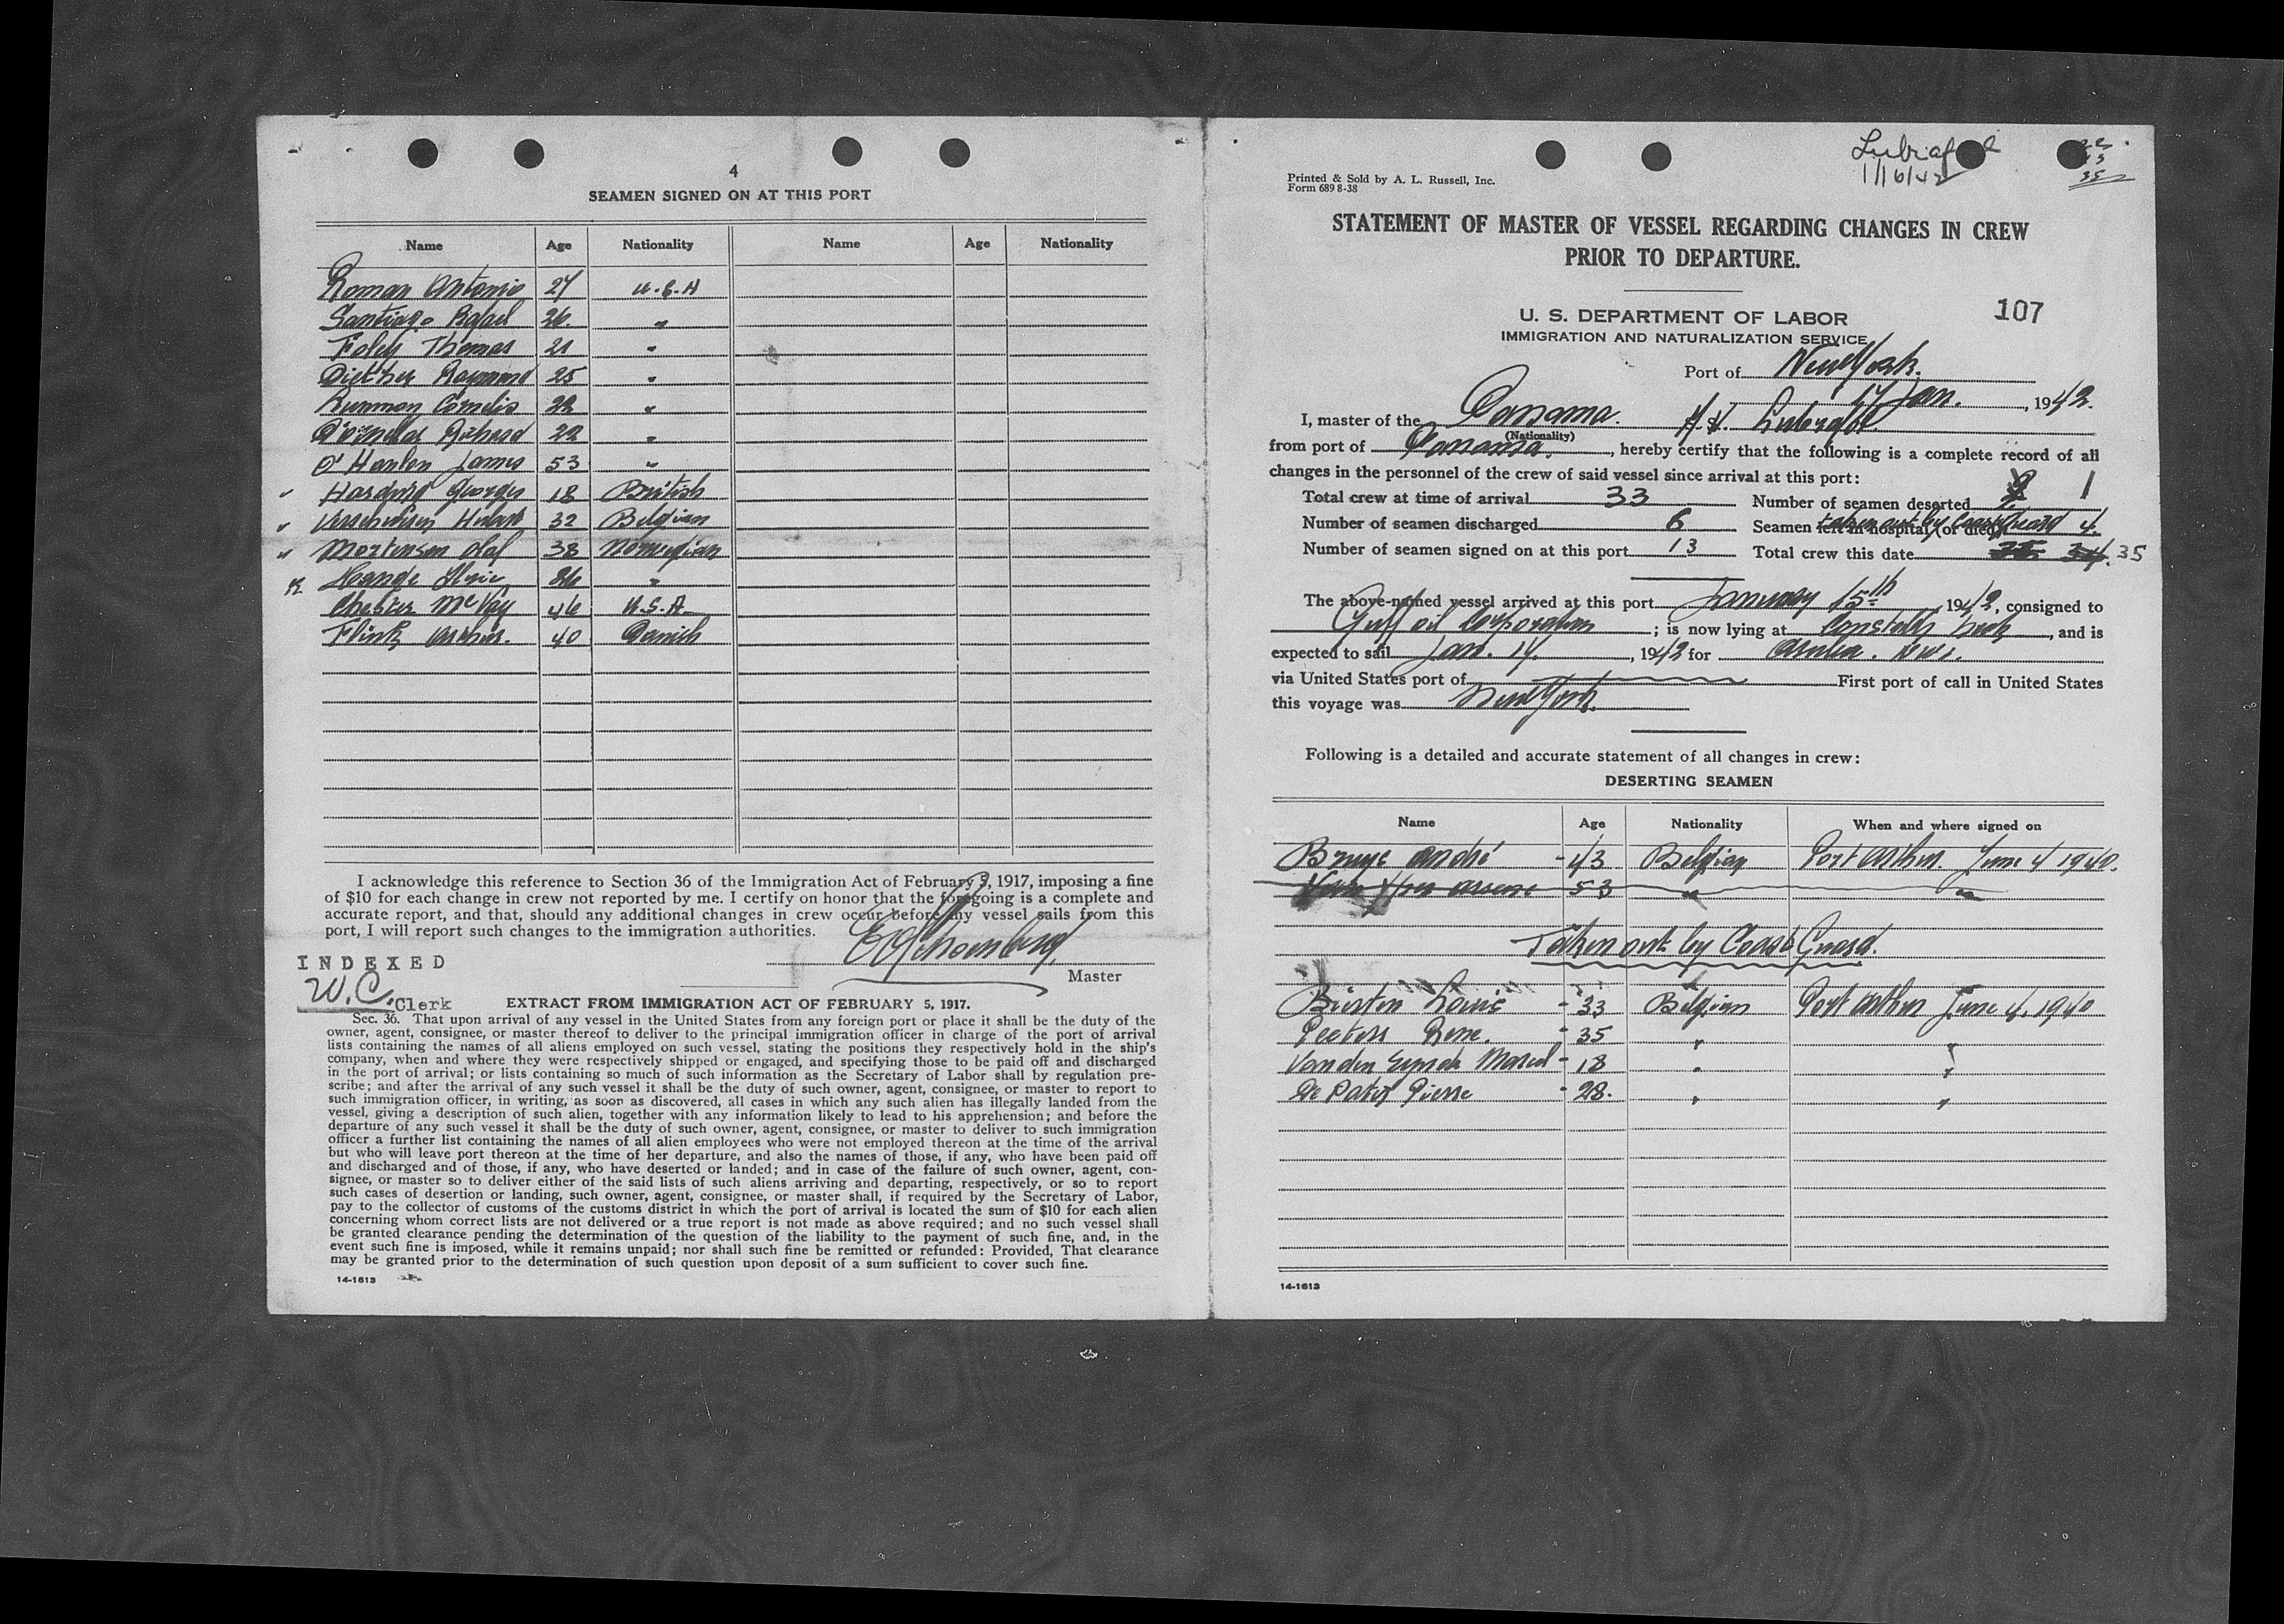 4
SEAMEN SIGNED ON AT THIS PORT
Name Age Nationality Name Age Nationality
Roman Antonio 27 U.S.A
Santiago Rafael 26. "
Foley Thomas 21 "
Raymond 25 "
Cornelis 22 "
Richard 22 "
O'Hanlon James 53 "
Harding George 18 British
32 Belgian
Mortensen Olaf 38 Norwegian
"
Chester McVay 46 U.S.A.
Flink Arthur. 40 Danish
I acknowledge this reference to Section 36 of the Immigration Act of February 5, 1917, imposing a fine
of $10 for each change in crew not reported by me. I certify on honor that the foregoing is a complete and
accurate report, and that, should any additional changes in crew occur before my vessel sails from this
port, I will report such changes to the immigration authorities.
Master
INDEXED
W.C. Clerk
EXTRACT FROM IMMIGRATION ACT OF FEBRUARY 5, 1917.
Sec. 36. That upon arrival of any vessel in the United States from any foreign port or place it shall be the duty of the
owner, agent, consignee, or master thereof to deliver to the principal immigration officer in charge of the port of arrival
lists containing the names of all aliens employed on such vessel, stating the positions they respectively hold in the ship's
company, when and where they were respectively shipped or engaged, and specifying those to be paid off and discharged
in the port of arrival; or lists containing so much of such information as the Secretary of Labor shall by regulation pre-
scribe; and after the arrival of any such vessel it shall be the duty of such owner, agent, consignee, or master to report to
such immigration officer, in writing, as soon as discovered, all cases in which any such alien has illegally landed from the
vessel, giving a description of such alien, together with any information likely to lead to his apprehension; and before the
departure of any such vessel it shall be the duty of such owner, agent, consignee, or master to deliver to such immigration
officer a further list containing the names of all alien employees who were not employed thereon at the time of the arrival
but who will leave port thereon at the time of her departure, and also the names of those, if any, who have been paid off
and discharged and of those, if any, who have deserted or landed; and in case of the failure of such owner, agent, con-
signee, or master so to deliver either of the said lists of such aliens arriving and departing, respectively, or so to report
such cases of desertion or landing, such owner, agent, consignee, or master shall, if required by the Secretary of Labor,
pay to the collector of customs of the customs district in which the port of arrival is located the sum of $10 for each alien
concerning whom correct lists are not delivered or a true report is not made as above required; and no such vessel shall
be granted clearance pending the determination of the question of the liability to the payment of such fine, and, in the
event such fine is imposed, while it remains unpaid; nor shall such fine be remitted or refunded: Provided, That clearance
may be granted prior to the determination of such question upon deposit of a sum sufficient to cover such fine.
14-1613
1/16/42
Printed & Sold by A. L. Russell, Inc.
Form 689 8-38
STATEMENT OF MASTER OF VESSEL REGARDING CHANGES IN CREW
PRIOR TO DEPARTURE.
107
U. S. DEPARTMENT OF LABOR
IMMIGRATION AND NATURALIZATION SERVICE
Port of New York.
17 Jan. , 1942.
I, master of the Panama. Lubrafol
(Nationality)
from port of Panama. , hereby certify that the following is a complete record of all
changes in the personnel of the crew of said vessel since arrival at this port:
Total crew at time of arrival 33 Number of seamen deserted 2 1
Number of seamen discharged 6 Seamen left in hospital (or died) taken out by Coast Guard 4.
Number of seamen signed on at this port 13 Total crew this date 34. 35
The above-named vessel arrived at this port January 15th , 1942, consigned to
Gulf oil Corporation ; is now lying at Constable Hook , and is
expected to sail Jan. 17. , 1942 for Aruba. N.W.I.
via United States port of First port of call in United States
this voyage was New York.
Following is a detailed and accurate statement of all changes in crew:
DESERTING SEAMEN
Name Age Nationality When and where signed on
André - 43 Belgian Port Arthur. June 4 1940.
53 " "
Taken out by Coast Guard.
Louis - 33 Belgian Port Arthur June 4. 1940
Peeters Rene. - 35 " "
Marcel - 18 " "
Pierre - 28. " "
14-1613